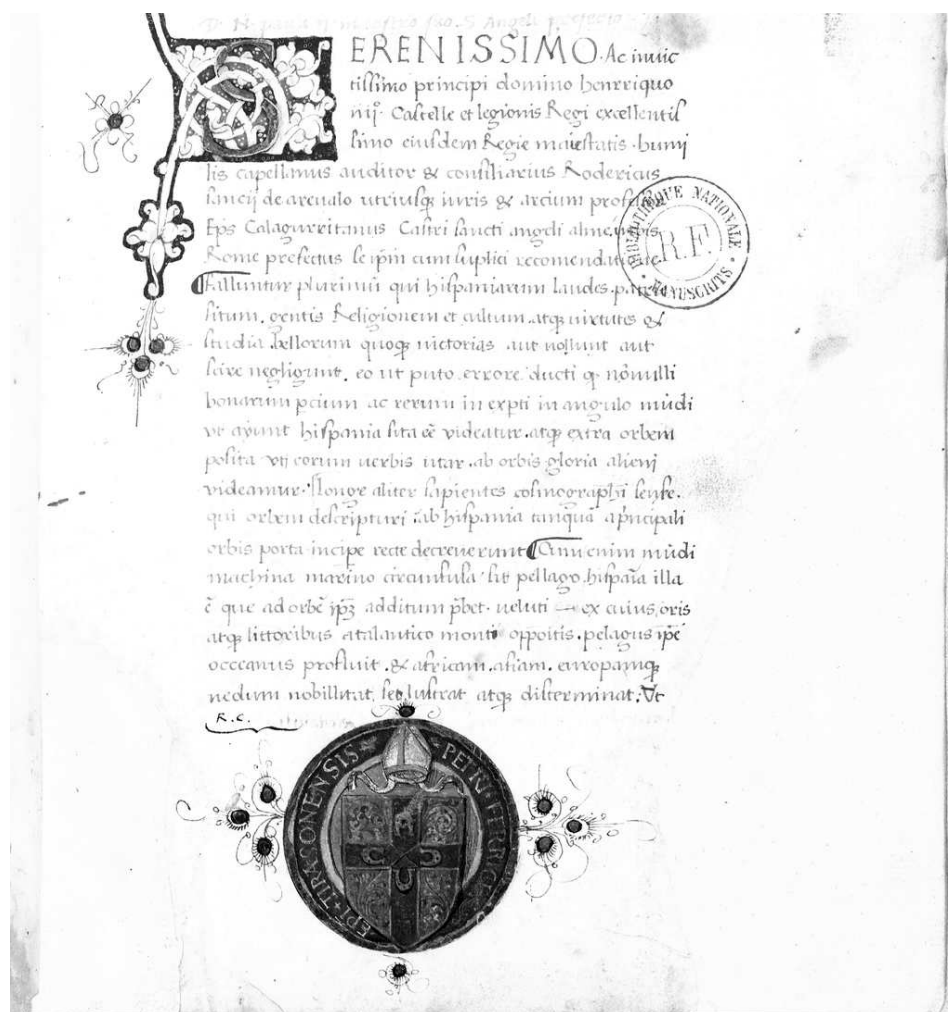 SERENISSIMO. Ac inuic
tissimo principi domino henrriquo
iiijº. Castelle et legionis Regi excellentis
simo eiusdem Regie maiestatis. humi
lis capellanus auditor & consiliarius Rodericus
sancij de areualo utriusqȝ iuris & arcium professor
Eps Calagurritanus Castri sancti angeli alme urbis
Rome prefectus se ip̃m cum suplici recomendatione
Falluntur plurimũ qui hispaniarum laudes. patrie
situm. gentis Religionem et cultum. atqȝ uirtutis &
studia. bellorum quoqȝ uictorias aut nossunt aut
scire negligunt. eo ut puto errore ducti qꝫ nõnulli
bonarum pcium ac rerum in expti in angulo mũdi
vt ayunt hispania sita cẽ videatur. atqȝ extra orbem
posita vtj eorum uerbis utar. ab orbis gloria alienj
videamur. Longe aliter sapientes cosmographi sense.
qui orbem descripturi. ab hispania tanquã a principali
orbis porta incipe recte decreuerunt Cum enim mũdi
machina marino circunfusa sit pellago. hispaĩa illa
ẽ que ad orbẽ ip̃ȝ additum p̃bet. ueluti — ex cuius oris
atqȝ littoribus atalantico monti oppoitis. pelagus ip̃e
occeanus profluit. & africam. asiam. europamqȝ
nedum nobillitat. set lustrat atqȝ disterminat. Vt
R.C.
BIBLIOTHEQUE NATIONALE
R.F.
MANUSCRITS
PETRI FERRICI
EPI TIRACONENSIS